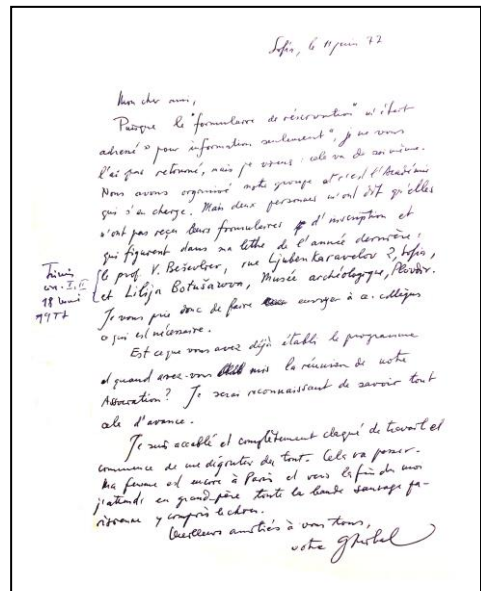 Sofia, le 11 juin 77
Mon cher ami,
Puisque le "formulaire de réservation" m'était
adressé "pour information seulement", je ne vous
l'ai pas retourné, mais je viens: cela va de soi-même.
Nous avons organisé notre groupe et c'est l'Académie
qui s'en charge. Mais deux personnes m'ont dit qu'elles
n'ont pas reçu leurs formulaires d'inscription et
qui figurent dans ma lettre de l'année dernière:
le prof. V. Beševliev, rue Ljuben Karavelov 2, Sofia,
et Lilija Botušarova, Musée archéologique, Plovdiv.
Je vous prie donc de faire envoyer à ces collègues
ce qui est nécessaire.
Est ce que vous avez déjà établi le programme
et quand avez-vous mis la réunion de notre
Association? Je serai reconnaissant de savoir tout
cela d'avance.
Je suis accablé et complètement claqué de travail et
commence de me dégoûter du tout. Cela va passer.
Ma femme est encore à Paris et vers la fin du moi
j'attends en grand-père toute la bande sauvage pa-
risienne y compris le chien.
Meilleurs amitiés à vous tous,
votre
18 mai
1977